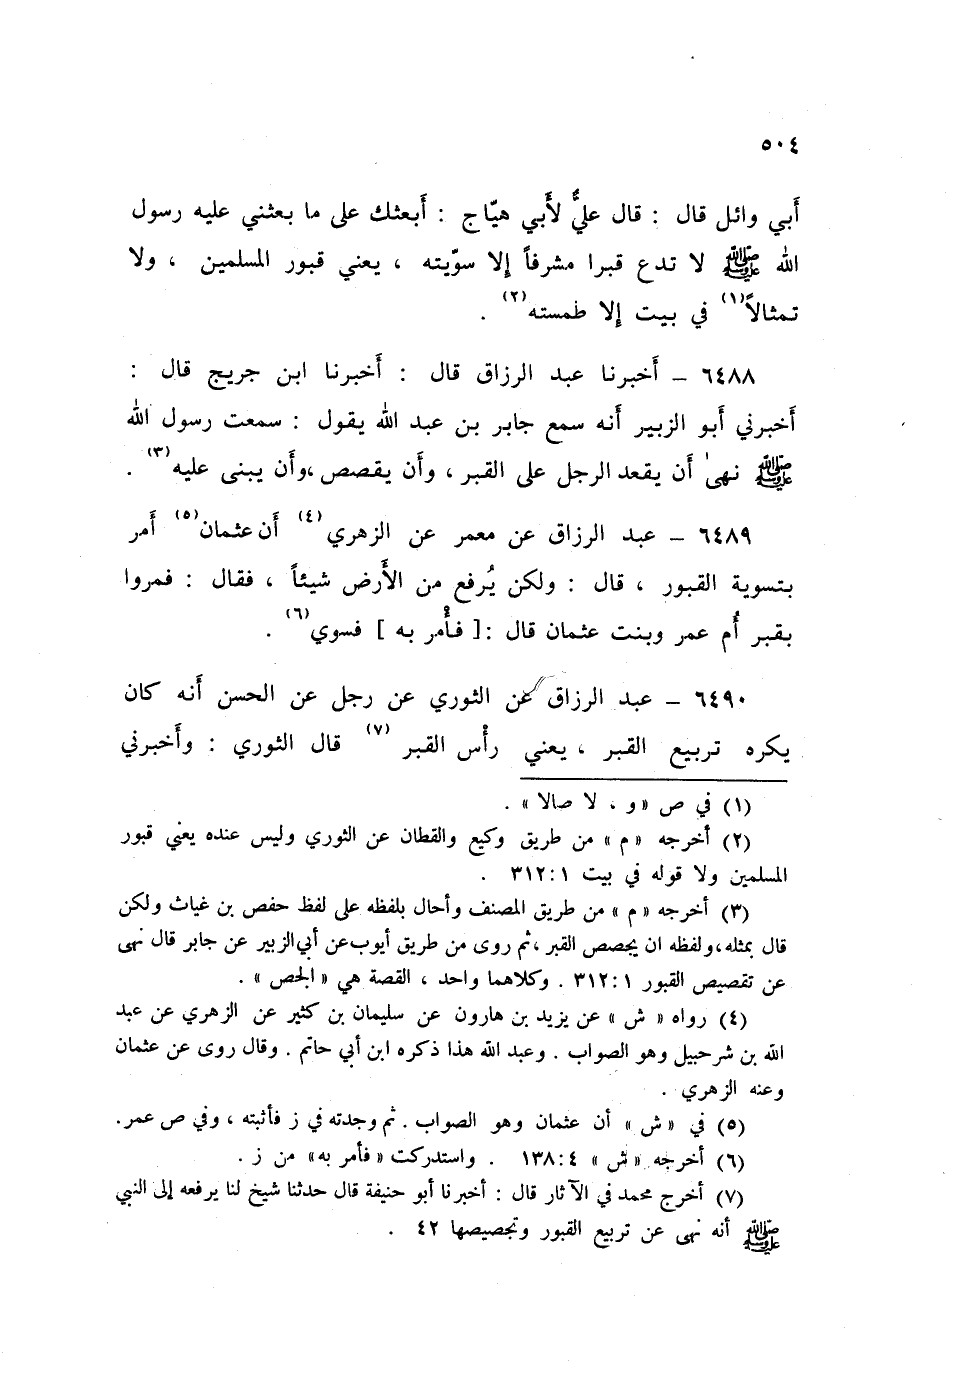 ٥٠٤
أَبي وائل قال : قال عليٌّ لأَبي هيّاج : أَبعثك على ما بعثني عليه رسول
الله ﷺ لا تدع قبرا مشرفاً إلا سوّيته ، يعني قبور المسلمين ، ولا
تمثالاً(١) في بيت إلا طمسته(٢) .
٦٤٨٨ – أَخبرنا عبد الرزاق قال : أَخبرنا ابن جريج قال :
أَخبرني أَبو الزبير أَنه سمع جابر بن عبد الله يقول : سمعت رسول الله
ﷺ نهىٰ أَن يقعد الرجل على القبر ، وأَن يقصص ،وأَن يبنى عليه(٣) .
٦٤٨٩ – عبد الرزاق عن معمر عن الزهري(٤) أَن عثمان(٥) أَمر
بتسوية القبور ، قال : ولكن يُرفع من الأَرض شيئاً ، فقال : فمروا
بقبر أُم عمر وبنت عثمان قال :[ فأُمر به ] فسوي(٦) .
٦٤٩٠ – عبد الرزاق عن الثوري عن رجل عن الحسن أَنه كان
يكره تربيع القبر ، يعني رأْس القبر(٧) قال الثوري : وأَخبرني
(١) في ص «و ، لا صالا» .
(٢) أخرجه «م» من طريق وكيع والقطان عن الثوري وليس عنده يعني قبور
المسلمين ولا قوله في بيت ٣١٢:١ .
(٣) أخرجه «م» من طريق المصنف وأحال بلفظه على لفظ حفص بن غياث ولكن
قال بمثله،ولفظه ان يجصص القبر ،ثم روى من طريق أيوب عن أبي الزبير عن جابر قال نهى
عن تقصيص القبور ٣١٢:١ . وكلاهما واحد ، القصة هي «الجص» .
(٤) رواه «ش» عن يزيد بن هارون عن سليمان بن كثير عن الزهري عن عبد
الله بن شرحبيل وهو الصواب . وعبد الله هذا ذكره ابن أبي حاتم . وقال روى عن عثمان
وعنه الزهري .
(٥) في «ش» أن عثمان وهو الصواب . ثم وجدته في ز فأثبته ، وفي ص عمر.
(٦) أخرجه «ش» ١٣٨:٤ . واستدركت «فأمر به» من ز .
(٧) أخرج محمد في الآثار قال : أخبرنا أبو حنيفة قال حدثنا شيخ لنا يرفعه إلى النبي
ﷺ أنه نهى عن تربيع القبور وتجصيصها ٤٢ .